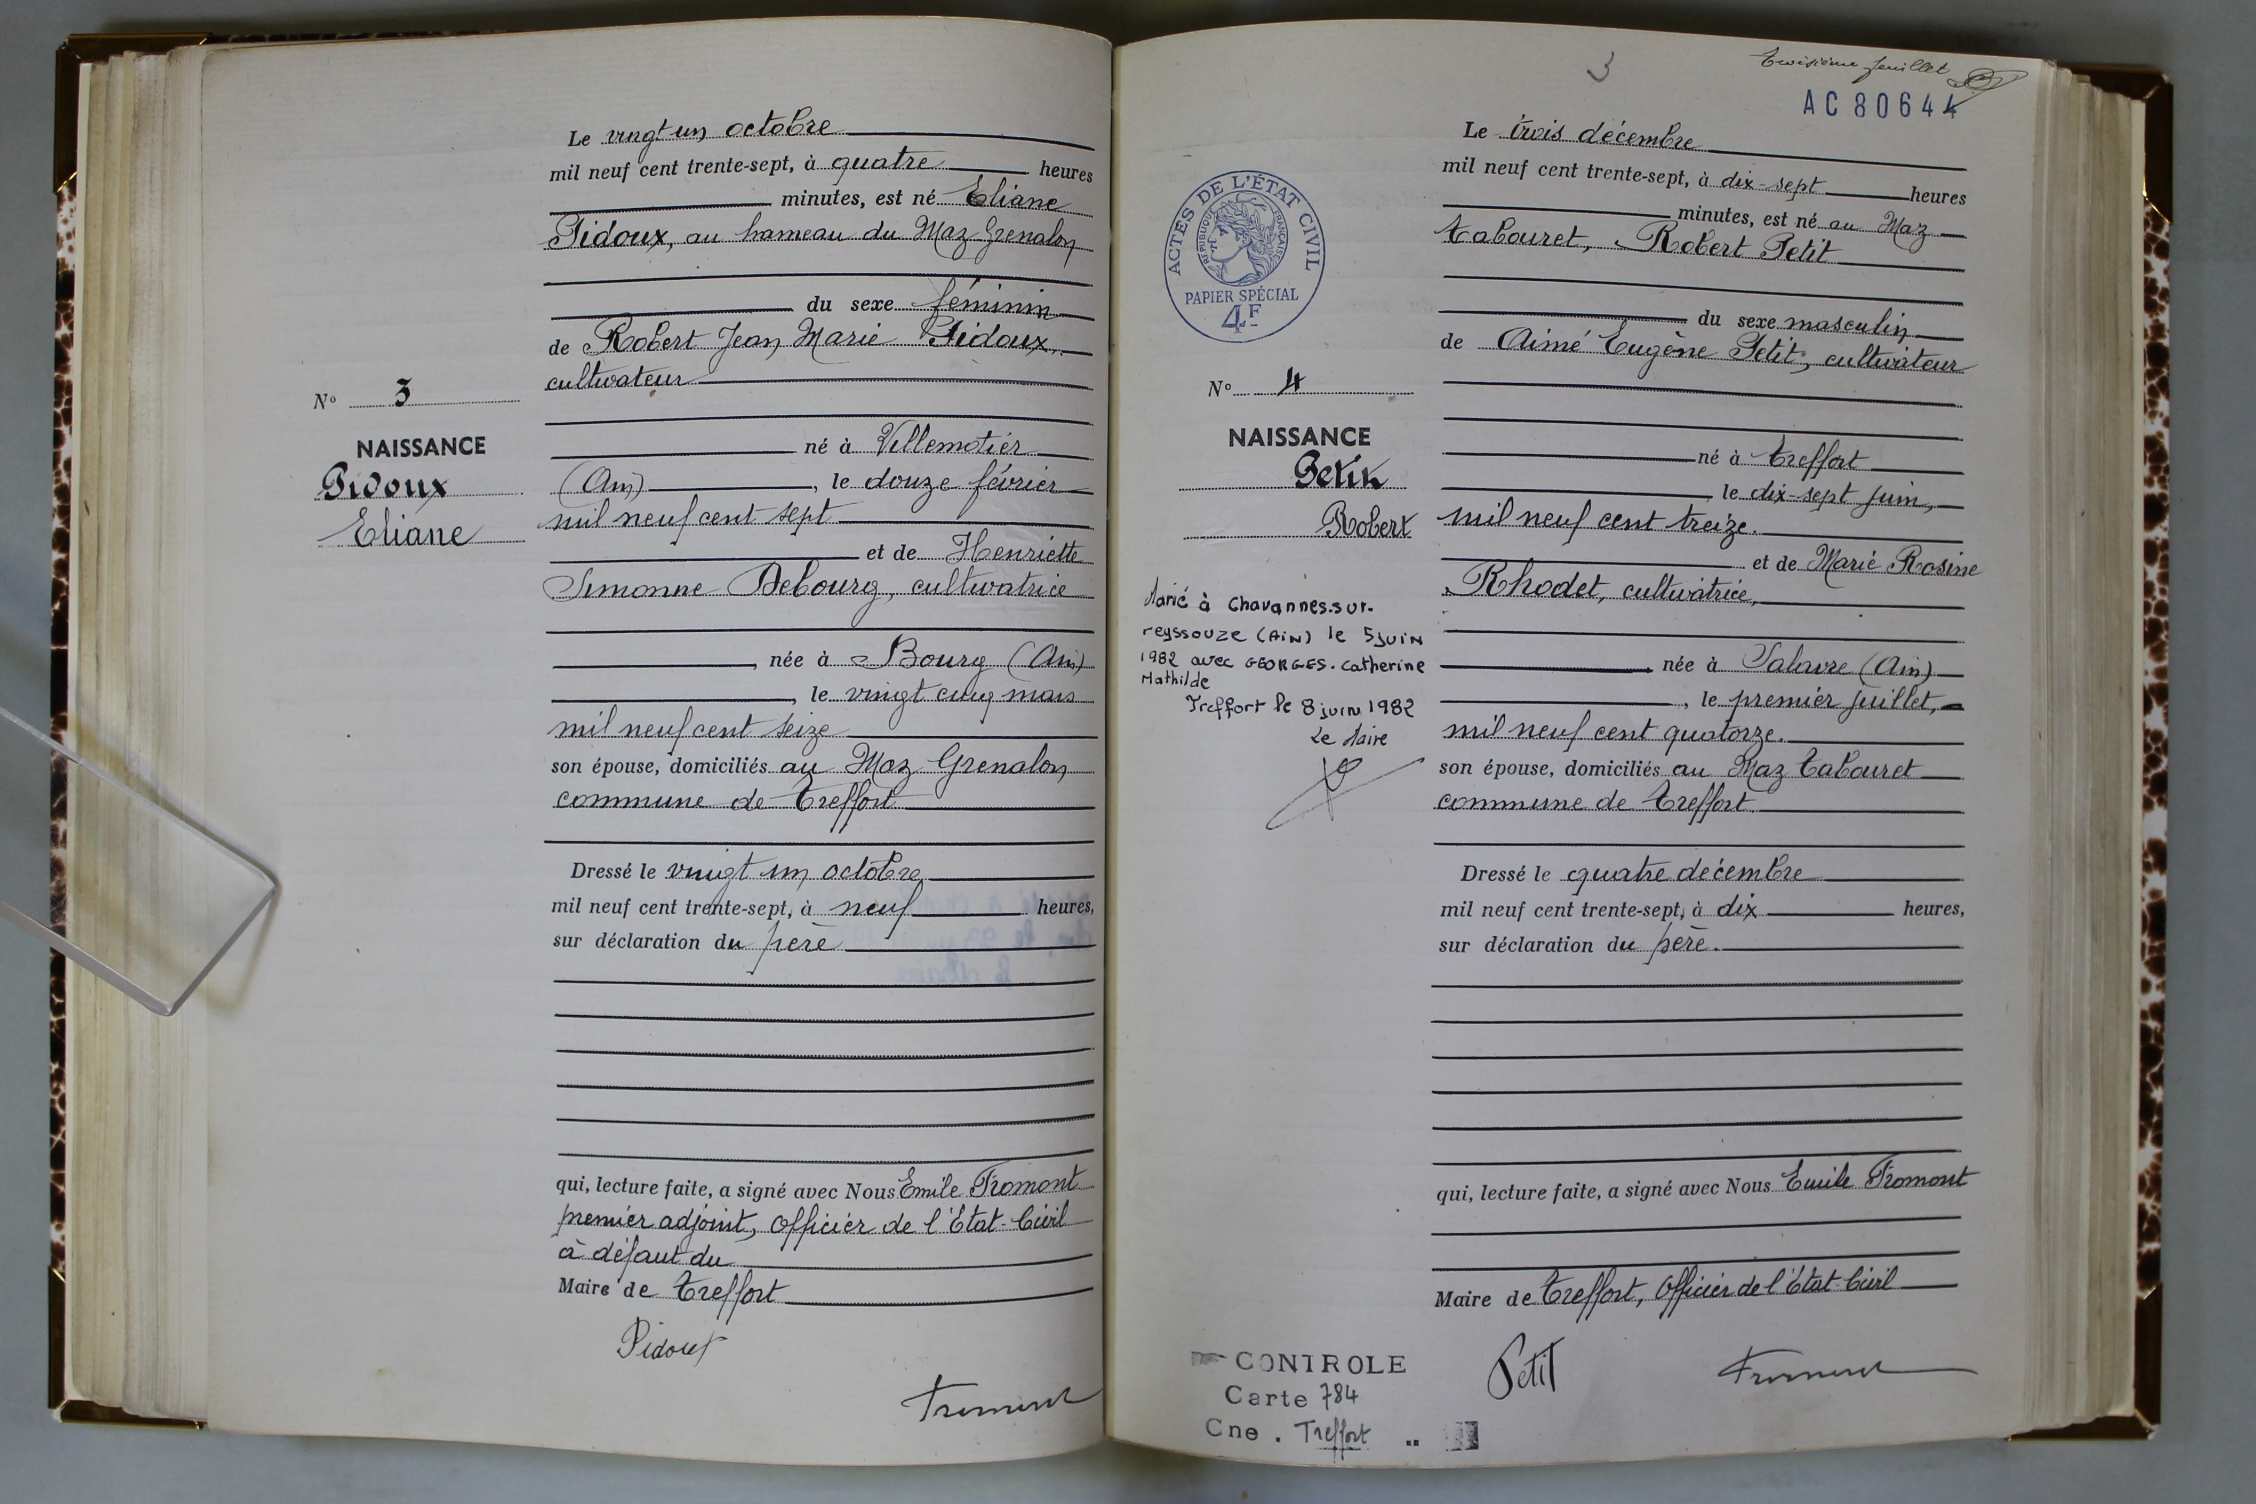 Le vingt un octobre
mil neuf cent trente-sept, à quatre heures
minutes, est né Eliane
Pidoux, au hameau du Maz Grenalon
du sexe féminin
de Robert Jean Marie Pidoux,
cultivateur
né à Villemotier
(Ain), le douze février
mil neuf cent sept
et de Henriette
Simonne Debourg, cultivatrice
, née à Bourg (Ain)
, le vingt cinq mars
mil neuf cent seize
son épouse, domiciliés au Maz Grenalon
commune de Treffort
Dressé le vingt un octobre
mil neuf cent trente-sept, à neuf heures,
sur déclaration du père
qui, lecture faite, a signé avec Nous Emile Fromont
premier adjoint, officier de l'Etat-Civil
à défaut du
Maire de Treffort
Pidoux
Fromont
No 3
NAISSANCE
Pidoux
Eliane
3
Troisième feuillet
AC 80644
ACTES DE L'ÉTAT CIVIL
RÉPUBLIQUE FRANÇAISE
PAPIER SPÉCIAL
4F
No 4
NAISSANCE
Petit
Robert
Marié à Chavannes-sur-
reyssouze (Ain) le 5 juin
1982 avec GEORGES. Catherine
Mathilde
Treffort le 8 juin 1982
Le Maire
Le trois décembre
mil neuf cent trente-sept, à dix-sept heures
minutes, est né au Maz
Tabouret, Robert Petit
du sexe masculin
de Aimé Eugène Petit, cultivateur
né à Treffort
, le dix-sept juin,
mil neuf cent treize.
et de Marie Rosine
Rhodet, cultivatrice,
, née à Salavre (Ain)
, le premier juillet,
mil neuf cent quatorze.
son épouse, domiciliés au Maz Tabouret
commune de Treffort
Dressé le quatre décembre
mil neuf cent trente-sept, à dix heures,
sur déclaration du père.
qui, lecture faite, a signé avec Nous Emile Fromont
Maire de Treffort, officier de l'Etat-Civil
Petit
Fromont
CONTROLE
Carte 784
Cne. Treffort